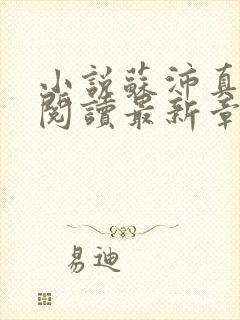 小説蘇沛真
閱讀最新章
易迪